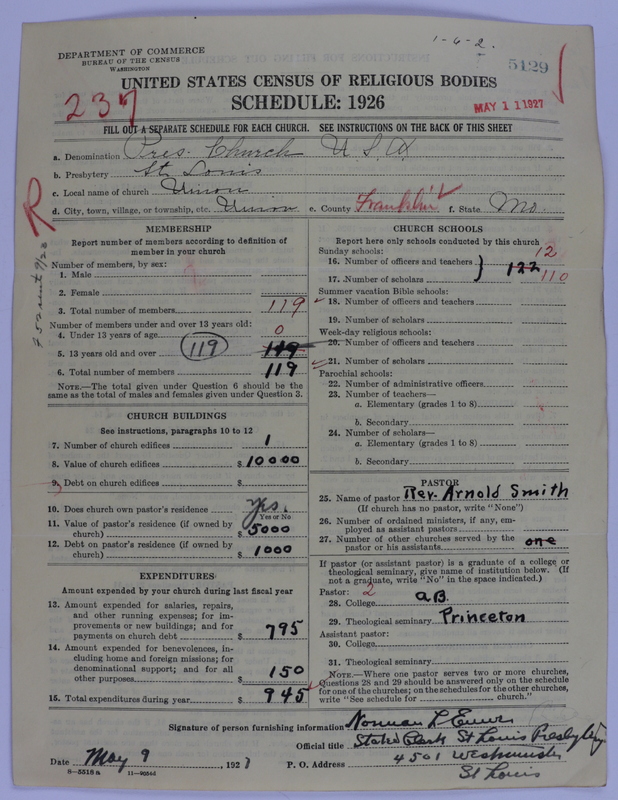 1-6-2.
DEPARTMENT OF COMMERCE
BUREAU OF THE CENSUS
WASHINGTON
5129
UNITED STATES CENSUS OF RELIGIOUS BODIES
237
SCHEDULE: 1926
MAY 11 1927
FILL OUT A SEPARATE SCHEDULE FOR EACH CHURCH. SEE INSTRUCTIONS ON THE BACK OF THIS SHEET
a. Denomination Pres. Church U S A
b. Presbytery St Louis
c. Local name of church Union
d. City, town, village, or township, etc. Union e. County Franklin f. State Mo.
R
MEMBERSHIP
Report number of members according to definition of member in your church
Number of members, by sex:
1. Male
2. Female
3. Total number of members 119
Number of members under and over 13 years old:
4. Under 13 years of age 0
5. 13 years old and over 119 119
6. Total number of members 119
NOTE.—The total given under Question 6 should be the
same as the total of males and females given under Question 3.
CHURCH BUILDINGS
See instructions, paragraphs 10 to 12
7. Number of church edifices 1
8. Value of church edifices $10000
9. Debt on church edifices $
10. Does church own pastor's residence Yes.
Yes or No
11. Value of pastor's residence (if owned by
church) $5000
12. Debt on pastor's residence (if owned by
church) $1000
EXPENDITURES
Amount expended by your church during last fiscal year
13. Amount expended for salaries, repairs,
and other running expenses; for im-
provements or new buildings; and for
payments on church debt $795
14. Amount expended for benevolences, in-
cluding home and foreign missions; for
denominational support; and for all
other purposes $150
15. Total expenditures during year $945
CHURCH SCHOOLS
Report here only schools conducted by this church
Sunday schools:
16. Number of officers and teachers 12
122
17. Number of scholars 110
Summer vacation Bible schools:
18. Number of officers and teachers
19. Number of scholars
Week-day religious schools:
20. Number of officers and teachers
21. Number of scholars
Parochial schools:
22. Number of administrative officers
23. Number of teachers—
a. Elementary (grades 1 to 8)
b. Secondary
24. Number of scholars—
a. Elementary (grades 1 to 8)
b. Secondary
PASTOR
25. Name of pastor Rev. Arnold Smith
(If church has no pastor, write "None")
26. Number of ordained ministers, if any, em-
ployed as assistant pastors
27. Number of other churches served by the
pastor or his assistants one
If pastor (or assistant pastor) is a graduate of a college or
theological seminary, give name of institution below. (If
not a graduate, write "No" in the space indicated.)
Pastor: 2
28. College aB.
29. Theological seminary Princeton
Assistant pastor:
30. College
31. Theological seminary
NOTE.—Where one pastor serves two or more churches,
Questions 28 and 29 should be answered only on the schedule
for one of the churches; on the schedules for the other churches,
write "See schedule for church."
Signature of person furnishing information Norman L
Official title Stated Clerk St Louis Presbytery
Date May 9, 1927 P. O. Address 4501 Westminster
St Louis
8—5518 a